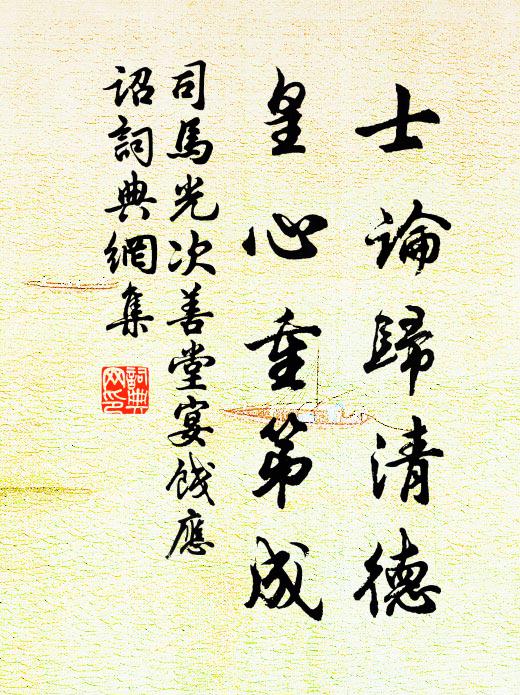 士論歸清德
皇心重第成
司馬光次善堂宴餞應
詔詞典網集
詞典
网印